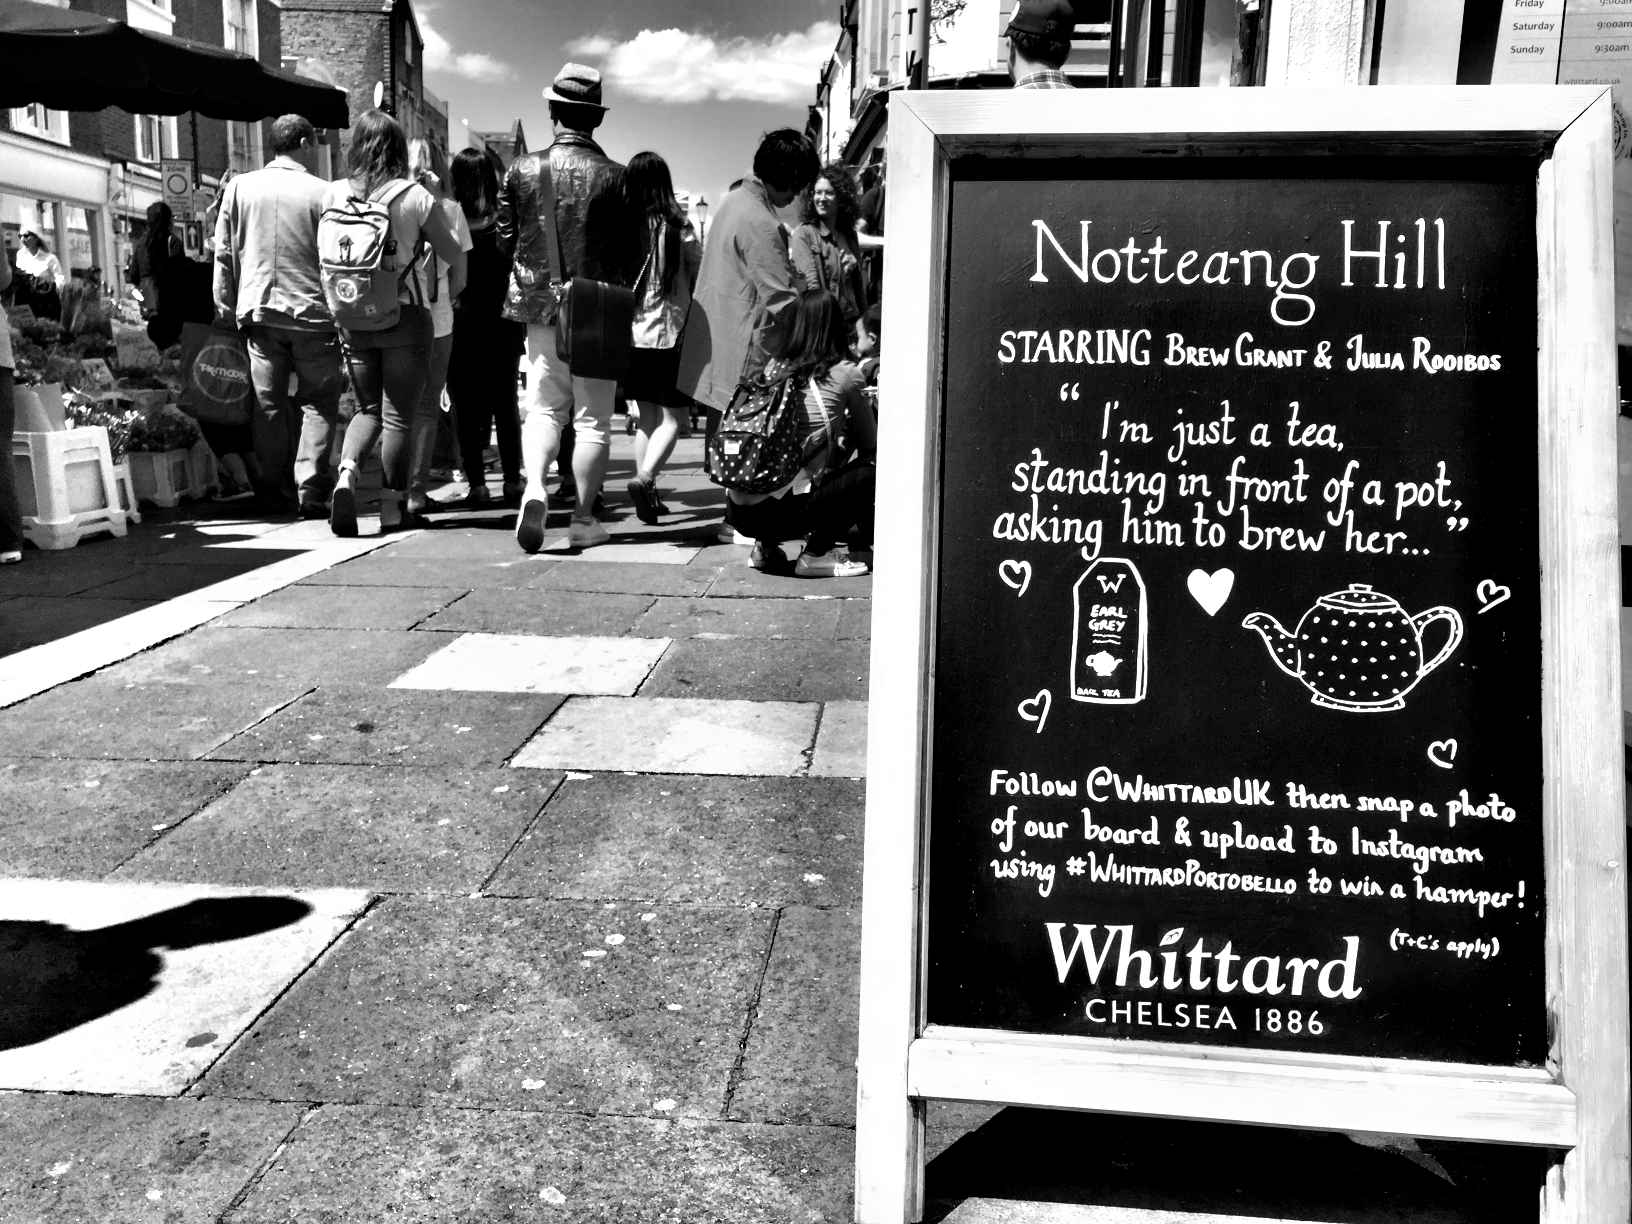 Friday 9:00am
Saturday 9:00am
Sunday 9:30am
whittard.co.uk
ZONE
SALE
TK maxx
Not-tea-ng Hill
STARRING BREW GRANT & JULIA ROOIBOS
“ I'm just a tea,
standing in front of a pot,
asking him to brew her... ”
W
EARL
GREY
BLACK TEA
Follow @WHITTARDUK then snap a photo
of our board & upload to Instagram
using #WHITTARDPORTOBELLO to win a hamper!
(T+C's apply)
Whittard
CHELSEA 1886